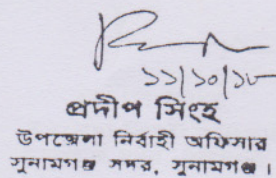 ১১/১০/১৮
প্রদীপ সিংহ
উপজেলা নির্বাহী অফিসার
সুনামগঞ্জ সদর, সুনামগঞ্জ।